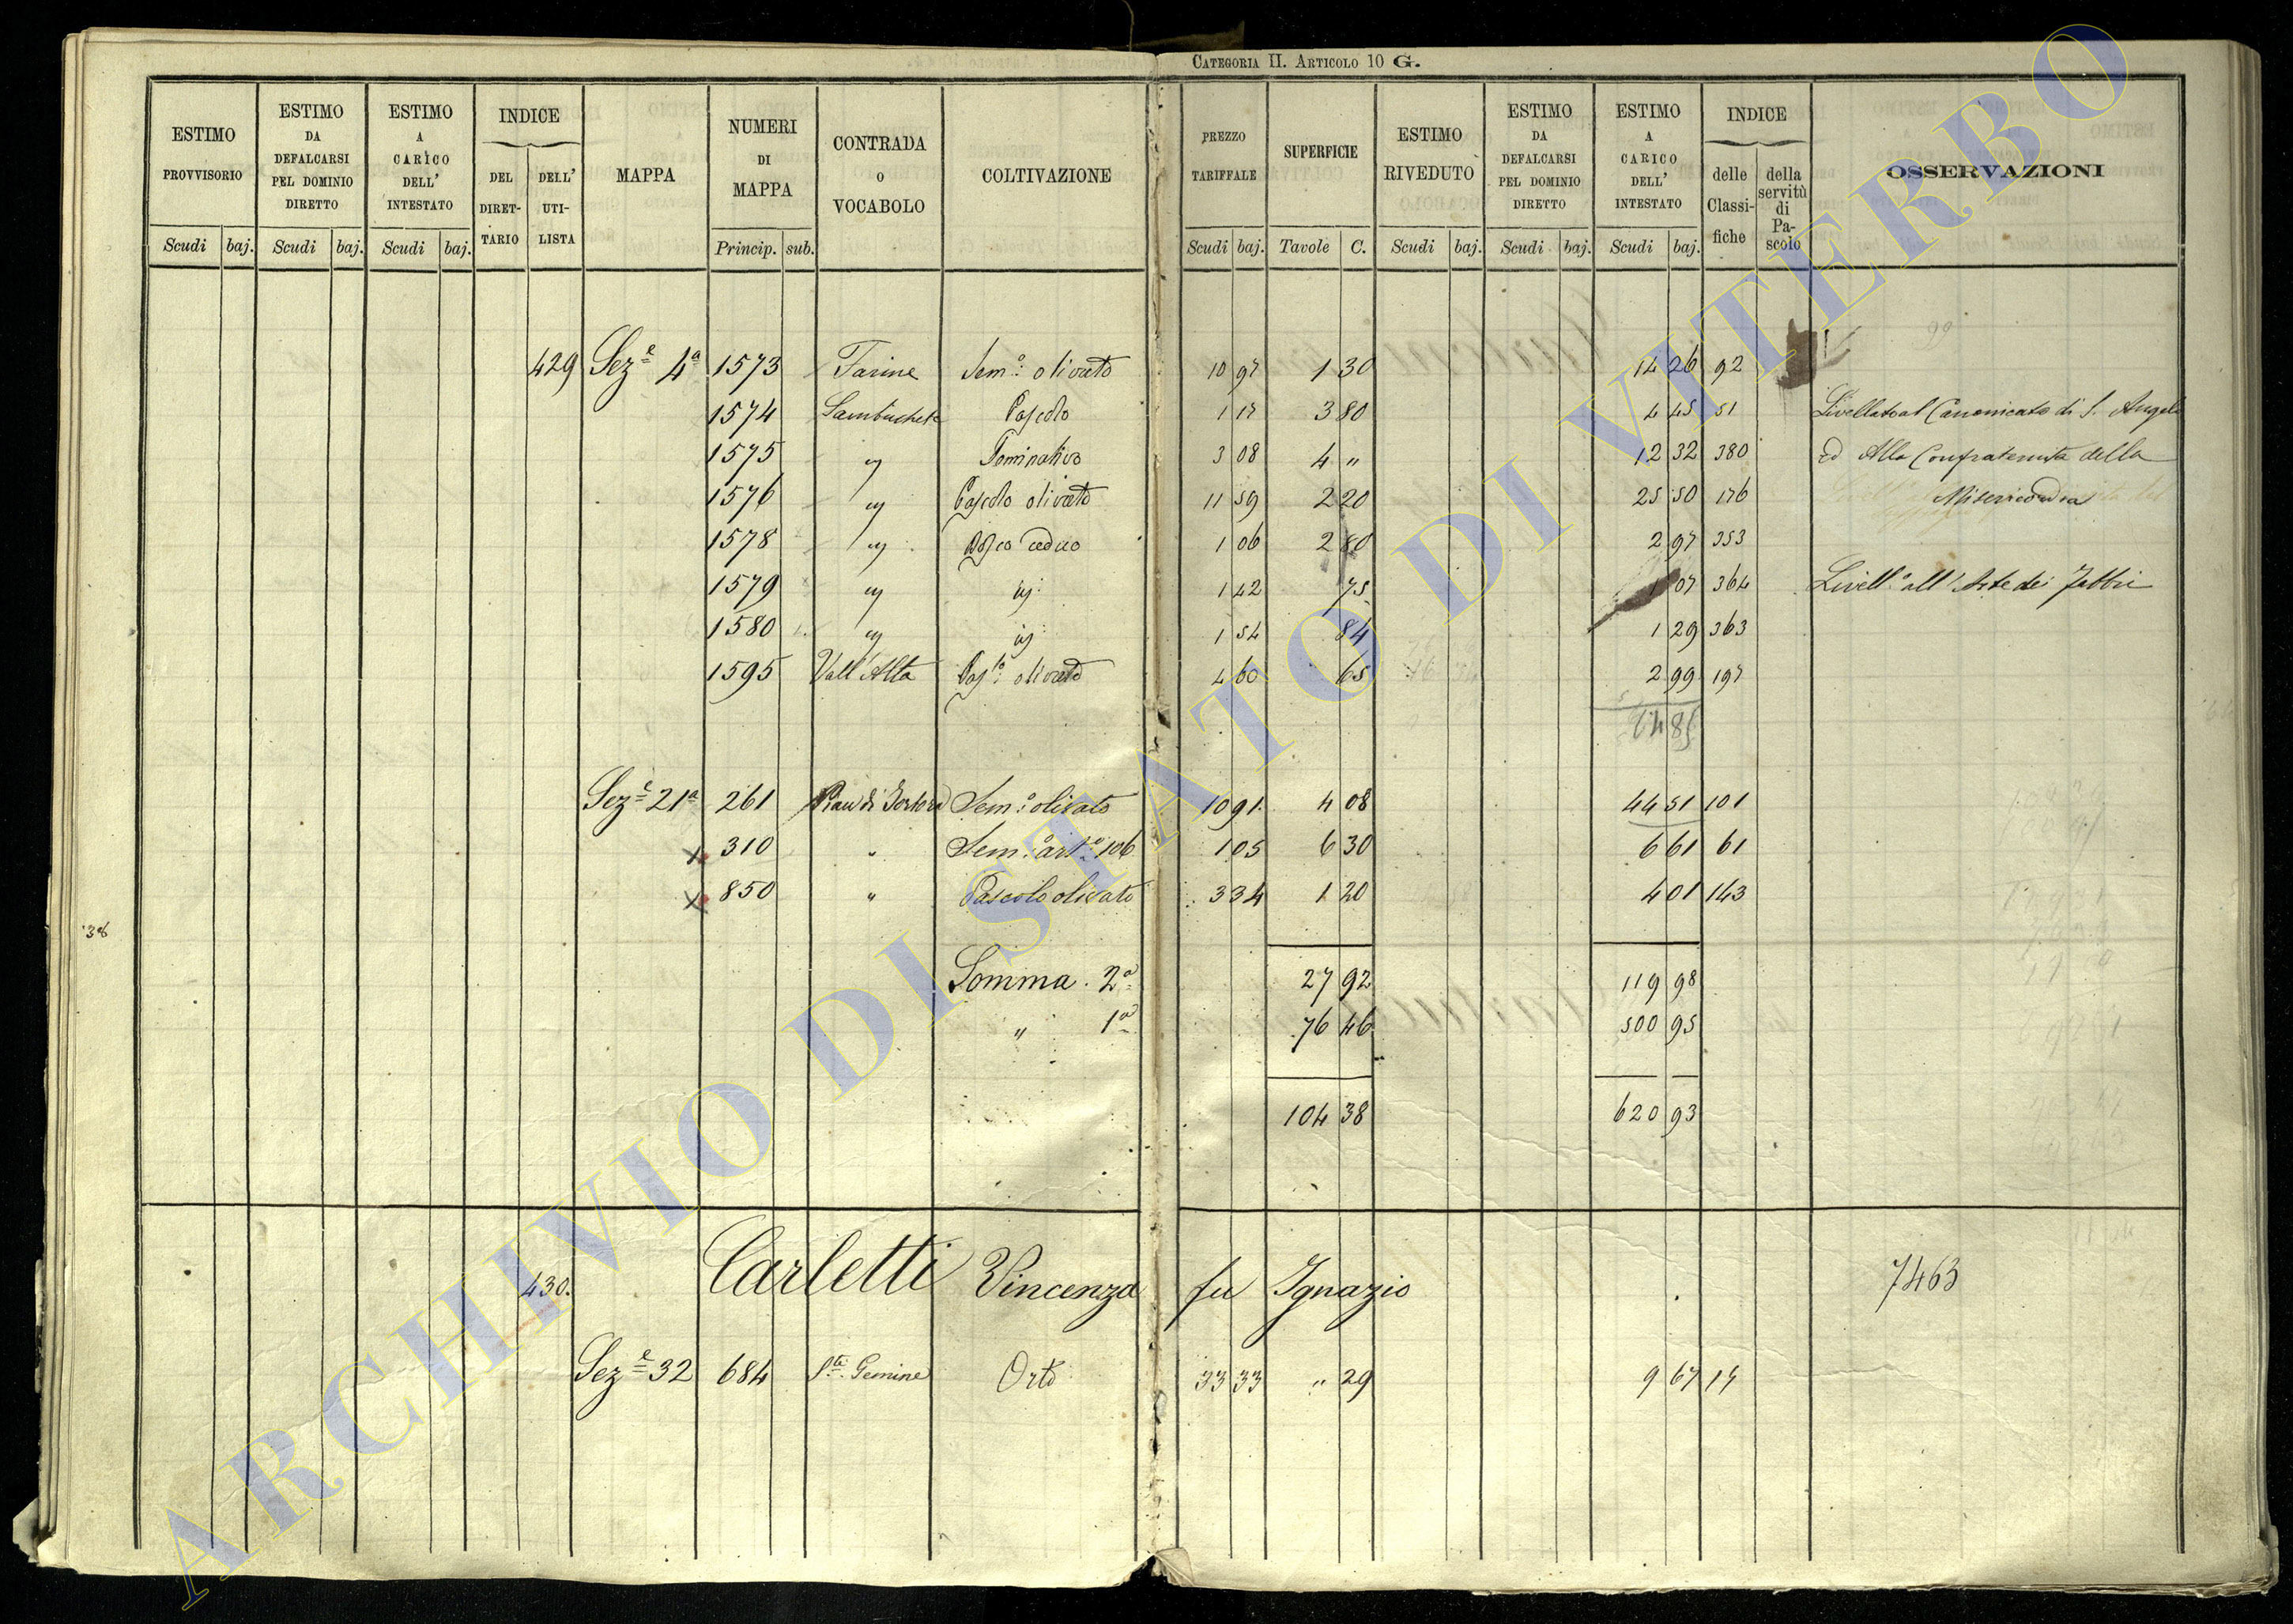 CATEGORIA II. ARTICOLO 10 G.
ESTIMO PROVVISORIO Scudi baj.
ESTIMO DA DEFALCARSI PEL DOMINIO DIRETTO Scudi baj.
ESTIMO A CARICO DELL' INTESTATO Scudi baj.
INDICE DEL DIRETTARIO DELL' UTILISTA
MAPPA
NUMERI DI MAPPA Princip. sub.
CONTRADA O VOCABOLO
COLTIVAZIONE
PREZZO TARIFFALE Scudi baj.
SUPERFICIE Tavole C.
ESTIMO RIVEDUTO Scudi baj.
ESTIMO DA DEFALCARSI PEL DOMINIO DIRETTO Scudi baj.
ESTIMO A CARICO DELL' INTESTATO Scudi baj.
INDICE delle Classifiche della servitù di Pascolo
OSSERVAZIONI
429 Sez.e 4a 1573 Farine Sem.o olivato 10 97 1 30 14 26 92
1574 Pascolo 1 17 3 80 4 45 51 Livellato al Canonicato di S. Angelo
1575 " Seminativo 3 08 4 " 12 32 380 ed Alla Confraternita della
1576 " Pascolo olivato 11 59 2 20 25 50 176 Misericordia
1578 " Bosco ceduo 1 06 2 80 2 97 353
1579 " " 1 42 75 1 07 364 Livell.o all'Arte dei Fabbri
1580 " " 1 54 84 1 29 363
1595 Vall'Alta Pas.lo olivato 4 60 65 2 99 197
64 85
Sez.e 21a 261 Sem.o olivato 10 91 4 08 44 51 101
310 " Sem.o art.o 106 1 05 6 30 6 61 61
850 " Pascolo olivato 3 34 1 20 4 01 143
Somma. 2a 27 92 119 98
" 1a 76 46 500 95
104 38 620 93
430. Carletti Vincenza fu Ignazio 7463
Sez.e 32 684 Orto 33 33 " 29 9 67 17
ARCHIVIO DI STATO DI VITERBO